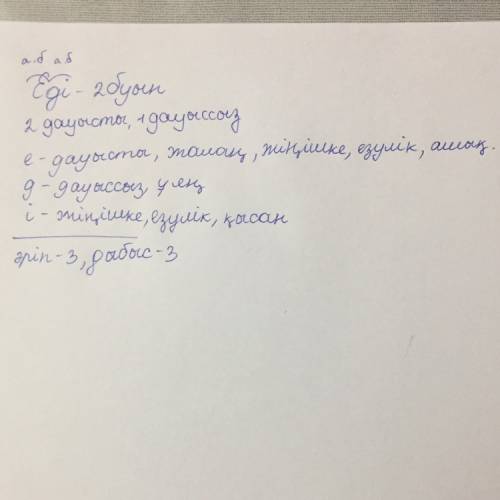 а.б а б
Еді - 2 буын
2 дауысты, 1 дауыссыз
е - дауысты, жалаң, жіңішке, езулік, ашық.
д - дауыссыз, ұяң
і - жіңішке, езулік, қысаң
әріп - 3, дыбыс - 3